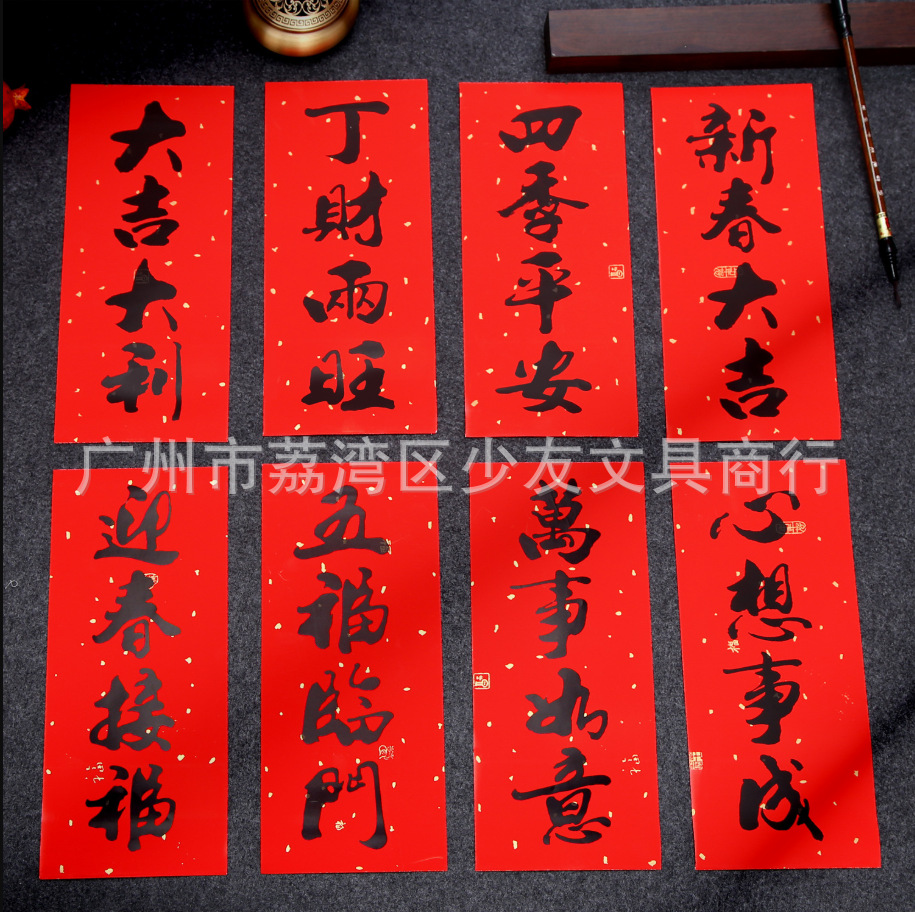 大吉大利
丁財兩旺
四季平安
新春大吉
广州市荔湾区少友文具商行
迎春接福
五福臨門
萬事如意
心想事成